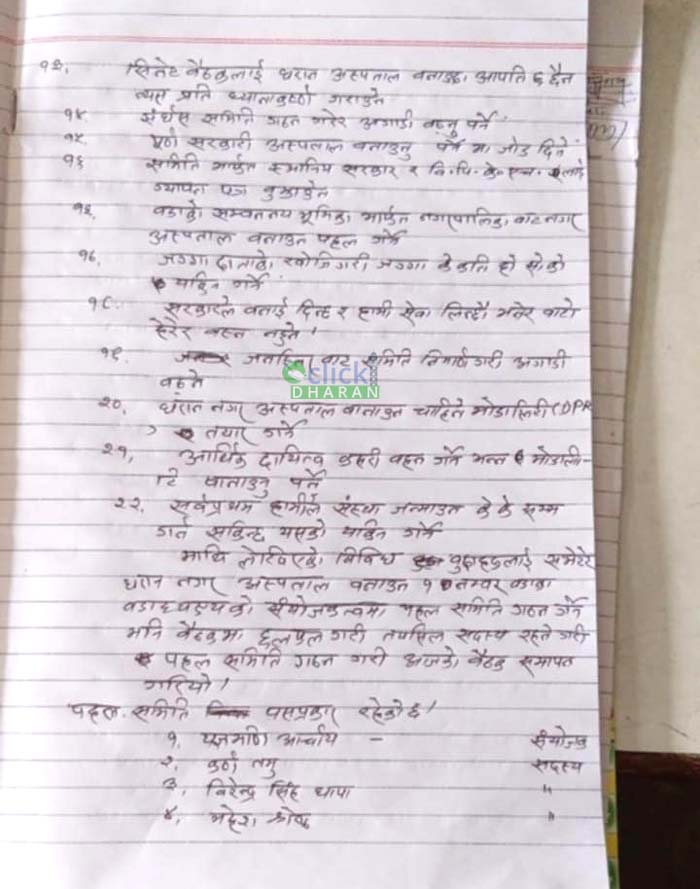 १३. सिनेट बैठकलाई धरान अस्पताल बनाउन आपति छ छैन
त्यस प्रति ध्यानाकर्षण गराउने
१४. संघर्ष समिति गठन गरेर अगाडी बढ्नु पर्ने
१५. पूर्ण सरकारी अस्पताल बनाउनु पर्ने मा जोड दिने
१६ समिति मार्फत स्थानिय सरकार र बि.पि.के.एन. लाई
ज्ञापन पत्र बुझाउने
१६. वडाको समन्वय भूमिका मार्फत नगरपालिका बाट नगर
अस्पताल बनाउन पहल गर्ने
१७. जग्गा दाताको खोजिगरी जग्गा के कति हो सोको
यकिन गर्ने
१८. सरकारले बनाई दिन्छ र हामी सेवा लिन्छौं भनेर बाटो
हेरेर बस्न नहुने।
१९. जनस्तर बाट समिति निर्माण गरी अगाडी
बढ्ने
click
DHARAN
२०. धरान नगर अस्पताल बनाउन चाहिने मोडालिटी (DPR
) तयार गर्ने
२१. आर्थिक दायित्व कसरी वहन गर्ने भन्ने मोडाली-
टि बनाउनु पर्ने
२२. सर्वप्रथम हामीले संस्था जन्माउन के के सम्म
गर्न सकिन्छ यसको यकिन गर्ने
माथि लेखिएको विविध बुँदाहरुलाई समेटेर
धरान नगर अस्पताल बनाउन १ नम्बर वडाका
वडाध्यक्षको संयोजकत्वमा पहल समिति गठन गर्ने
भनि बैठकमा छलफल गरी तपसिल सदस्य रहने गरी
पहल समिति गठन गरी आजको बैठक समापन
गरियो।
पहल समिति यसप्रकार रहेको छ।
१. यज्ञमणि आचार्य – संयोजक
२. कर्ण तमु सदस्य
३. विरेन्द्र सिंह थापा "
४. महेश श्रेष्ठ "